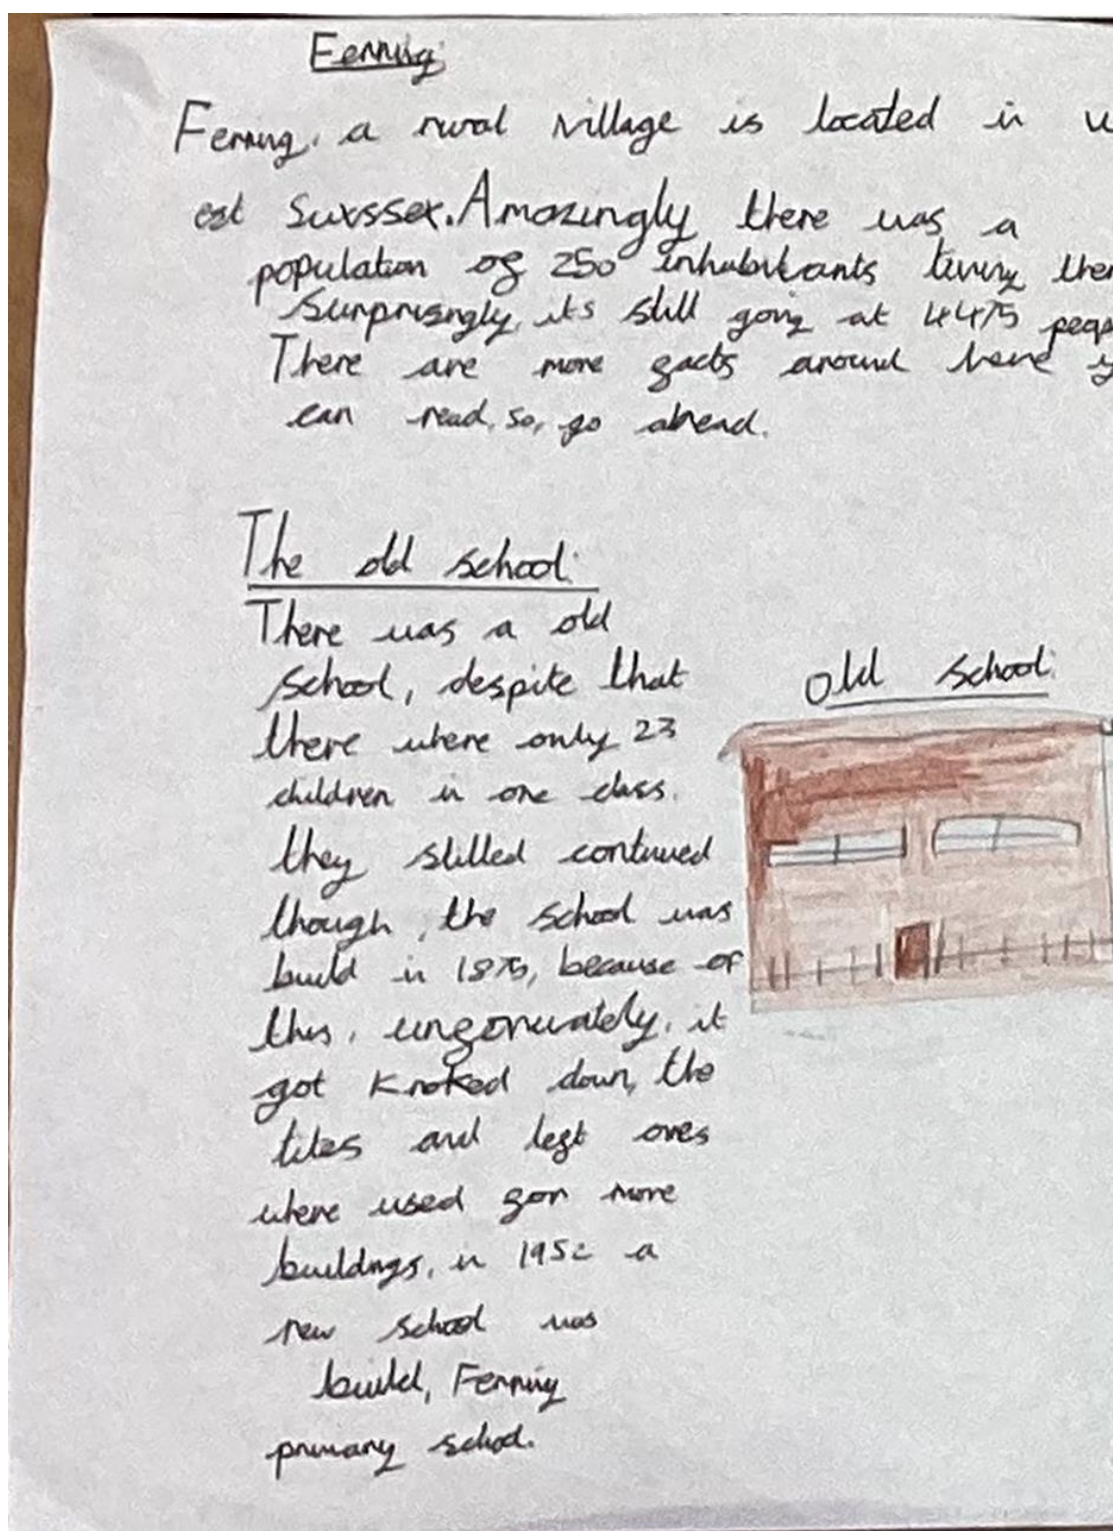 Ferring
Ferring, a rural village is located in w
est Suxssex. Amazingly there was a
population of 250 inhabitants living ther
Surprisngly, its still going at 4475 peop
There are more facts around here y
can read, so, go ahead.
The old school
There was a old
school, despite that
old school
there where only 23
children in one class.
they stilled continued
though, the school was
build in 1873, because of
this, unforuately, it
got knoked down, the
tiles and left overs
where used for more
buildings, in 1952 a
new school was
build, Ferring
primary school.